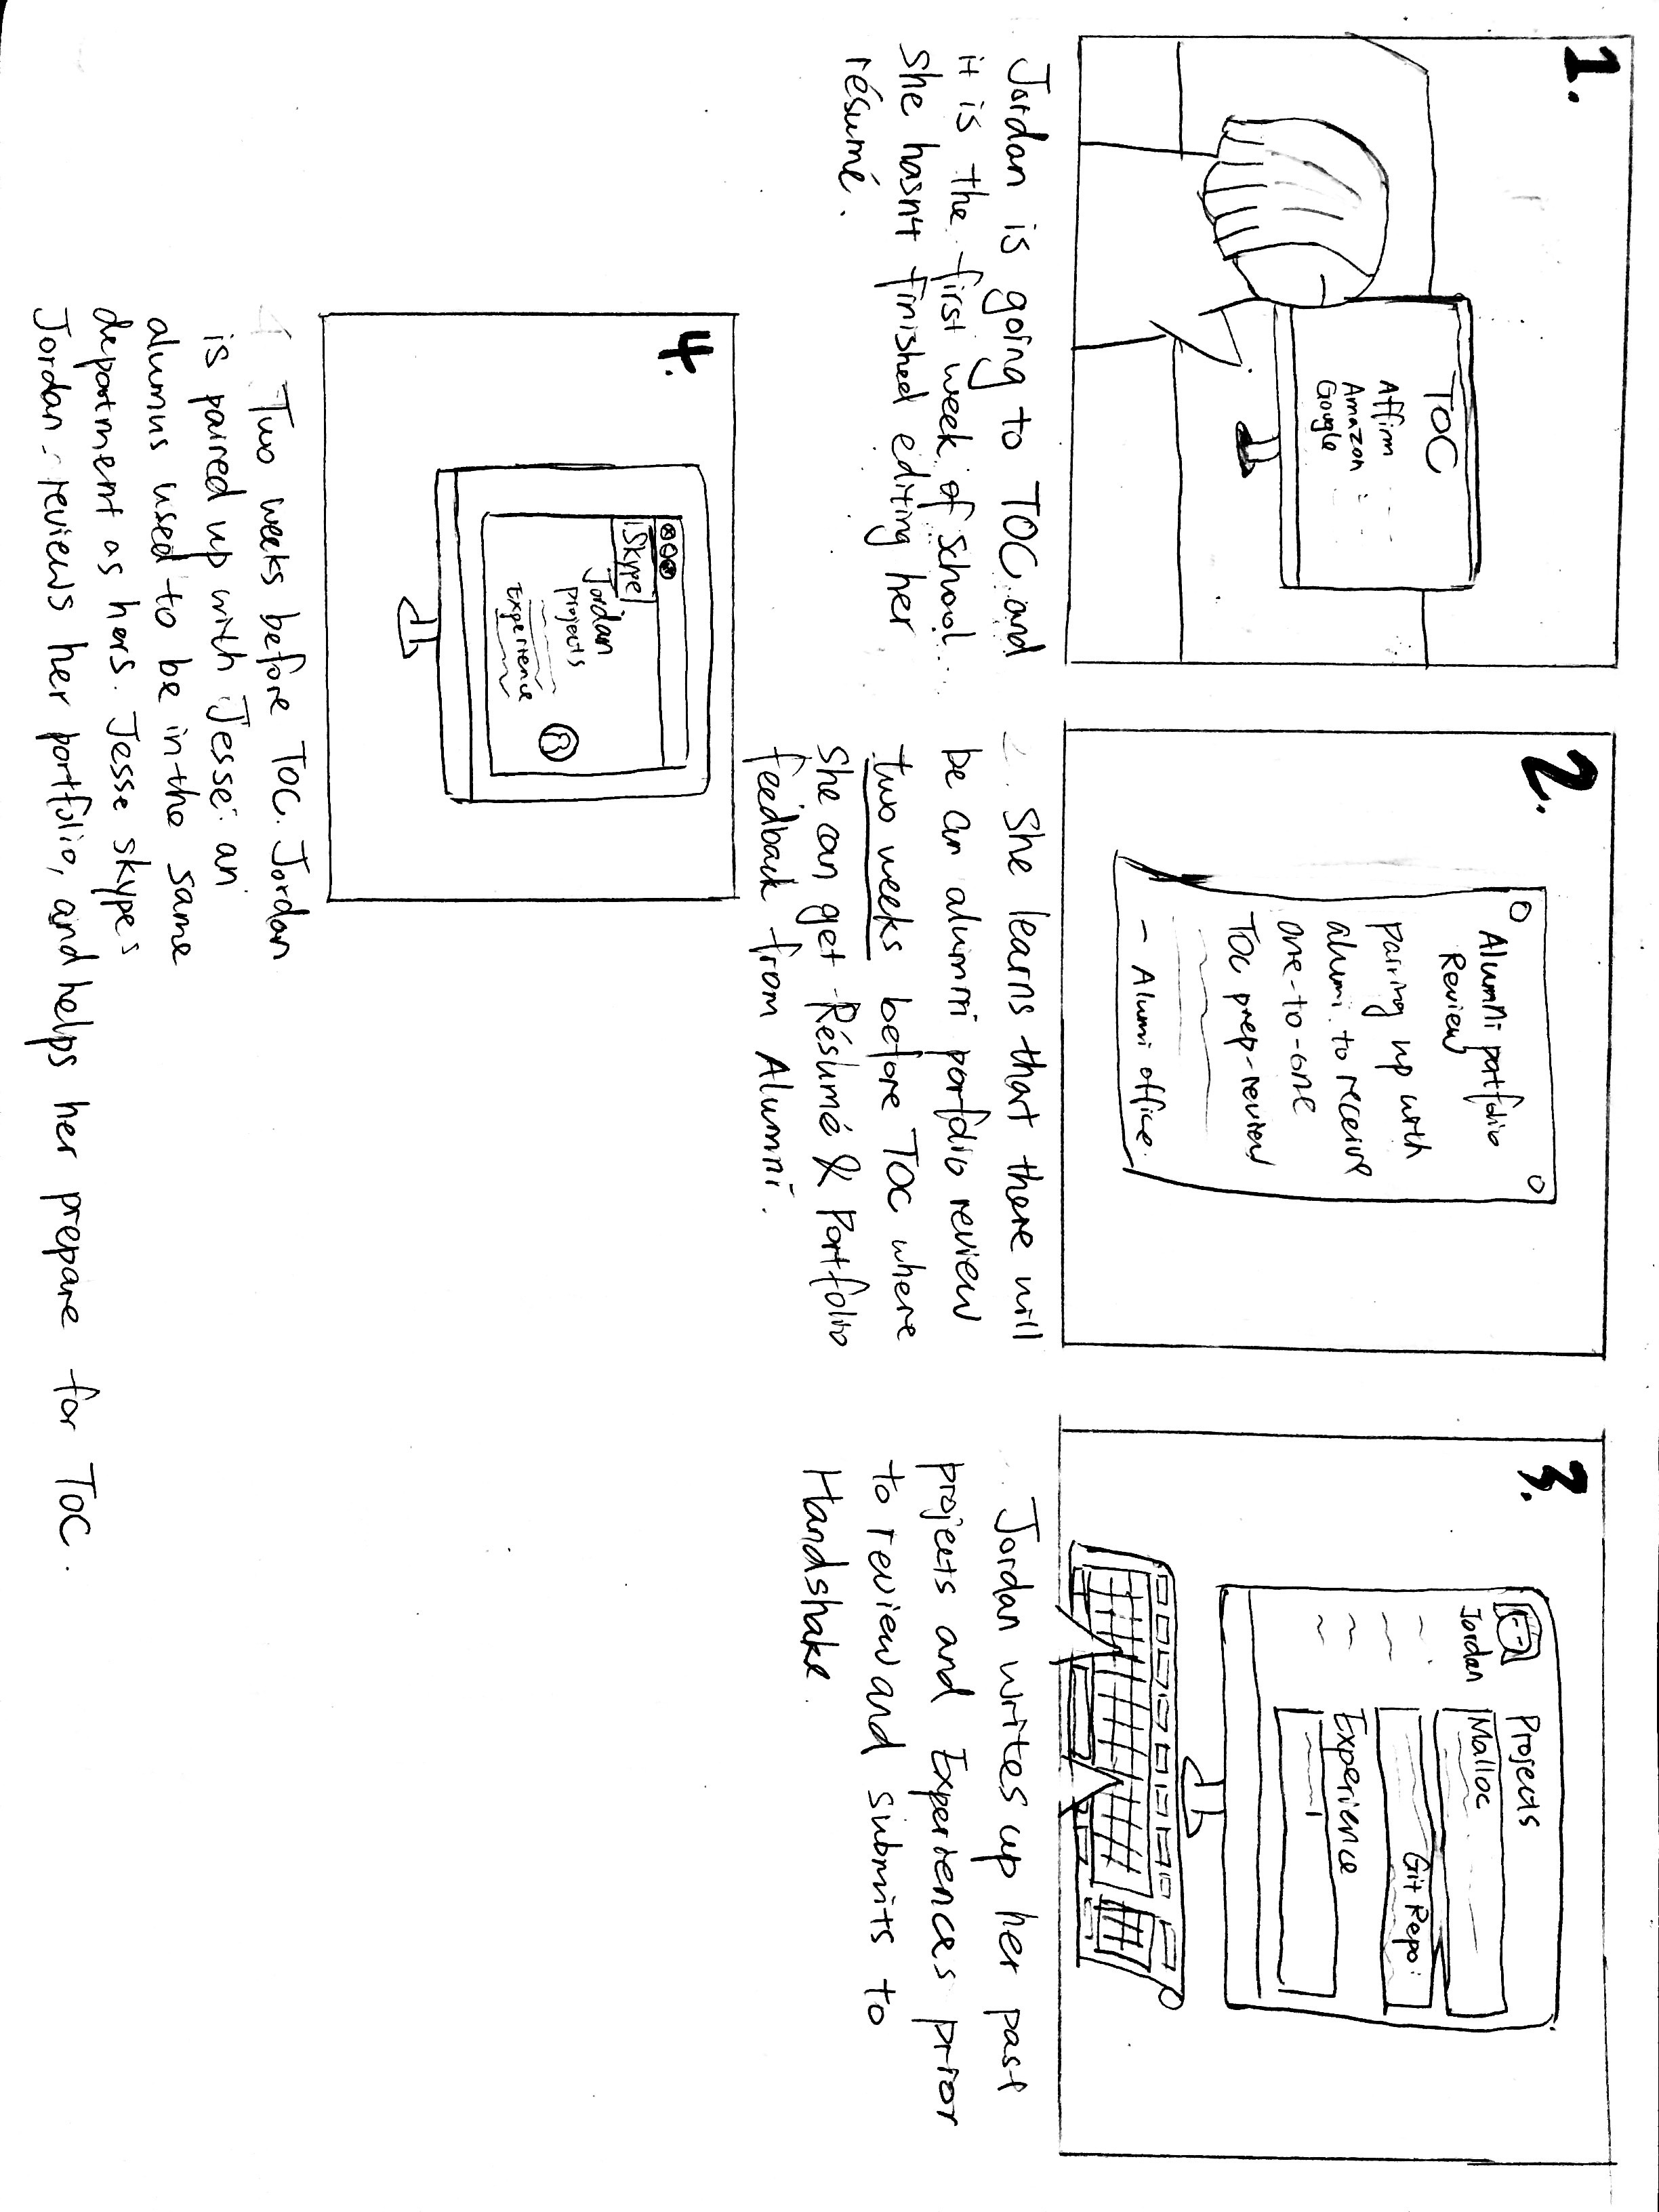 1.
TOC
Affirm
Amazon
Google
Jordan is going to TOC and
it is the first week of school
She hasn't finished editing her
résumé.
2.
Alumni portfolio
Review
pairing up with
alumni to receive
one-to-one
TOC prep-review
- Alumni office
She learns that there will
be an alumni portfolio review
two weeks before TOC where
she can get Résumé & Portfolio
feedback from Alumni.
3.
Jordan
Projects
Malloc
Git Repo
Experience
Jordan writes up her past
projects and Experiences prior
to review and submits to
Handshake.
4.
Skype
Jordan
Projects
Experience
Two weeks before TOC. Jordan
is paired up with Jesse: an
alumnus used to be in the same
department as hers. Jesse skypes
Jordan reviews her portfolio, and helps her prepare for TOC.